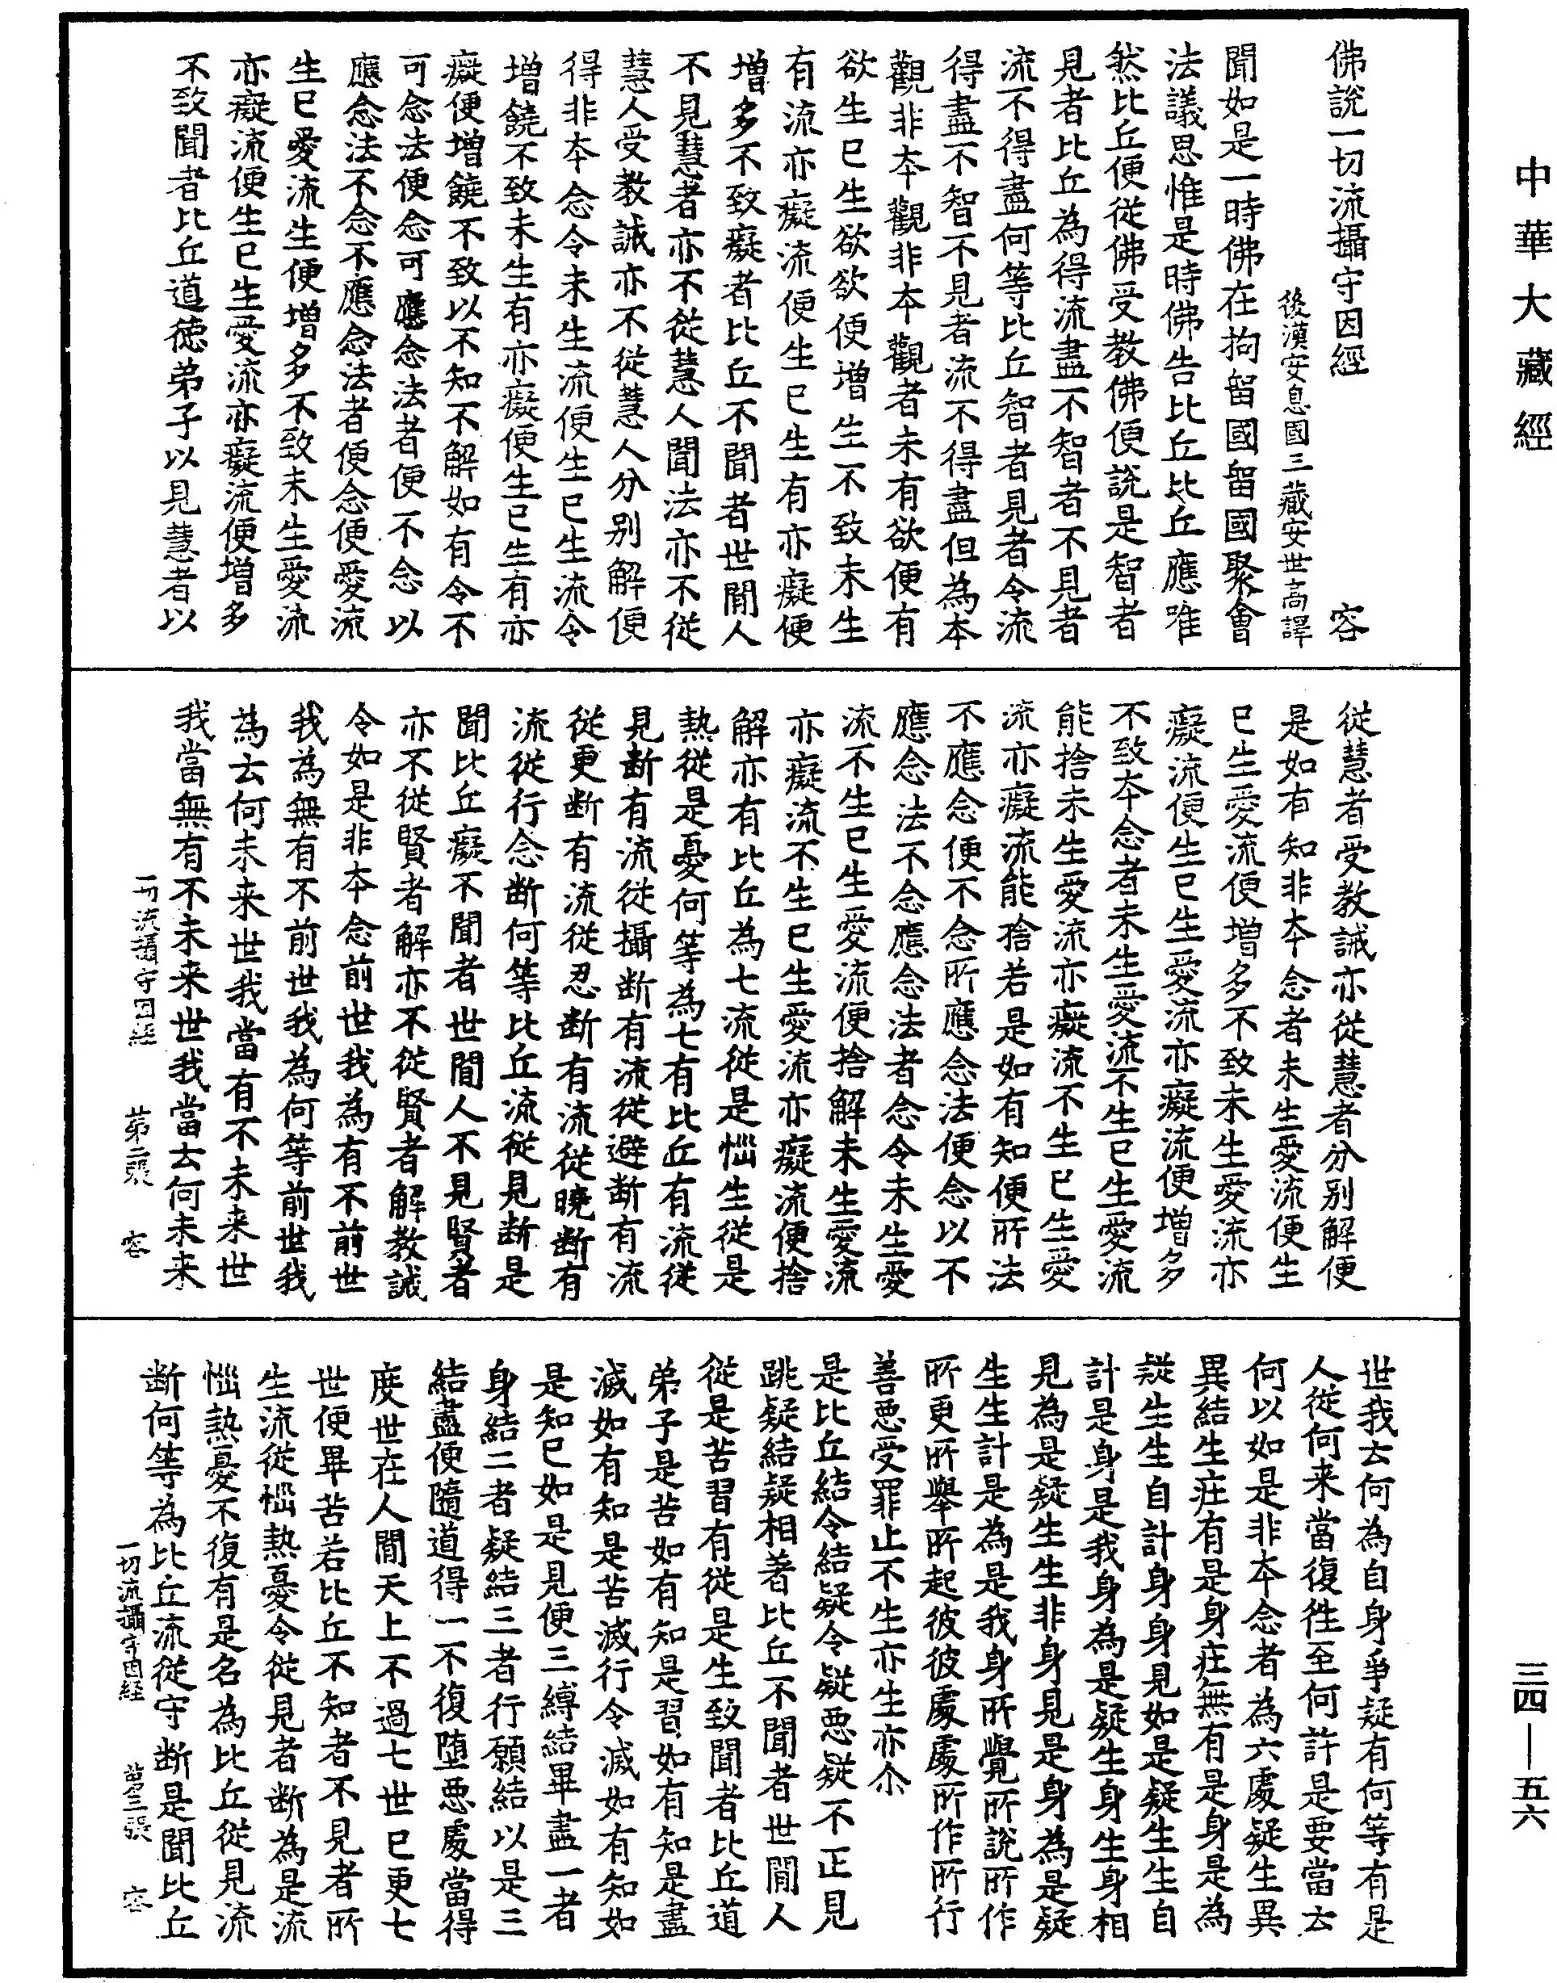 中華大藏經
佛說一切流攝守因經　容
後漢安息國三藏安世高譯
聞如是一時佛在拘留國留國聚會
法議思惟是時佛告比丘比丘應唯
然比丘便從佛受教佛便說是智者
見者比丘為得流盡不智者不見者
流不得盡何等比丘智者見者令流
得盡不智不見者流不得盡但為本
觀非本觀非本觀者未有欲便有
欲生已生欲欲便增生不致未生
有流亦癡流便生已生有亦癡便
增多不致癡者比丘不聞者世間人
不見慧者亦不從慧人聞法亦不從
慧人受教誡亦不從慧人分別解便
得非本念令未生流便生已生流令
增饒不致未生有亦癡便生已生有亦
癡便增饒不致以不知不解如有令不
可念法便念可應念法者便不念以
應念法不念不應念法者便念便愛流
生已愛流生便增多不致未生愛流
亦癡流便生已生愛流亦癡流便增多
不致聞者比丘道德弟子以見慧者以
從慧者受教誡亦從慧者分別解便
是如有知非本念者未生愛流便生
已生愛流便增多不致未生愛流亦
癡流便生已生愛流亦癡流便增多
不致本念者未生愛流不生已生愛流
能捨未生愛流亦癡流不生已生愛
流亦癡流能捨若是如有知便所法
不應念便不念所應念法便念以不
應念法不念應念法者念令未生愛
流不生已生愛流便捨解未生愛流
亦癡流不生已生愛流亦癡流便捨
解亦有比丘為七流從是惱生從是
熱從是憂何等為七有比丘有流從
見斷有流從攝斷有流從避斷有流
從更斷有流從忍斷有流從曉斷有
流從行念斷何等比丘流從見斷是
聞比丘癡不聞者世間人不見賢者
亦不從賢者解亦不從賢者解教誡
令如是非本念前世我為有不前世
我為無有不前世我為何等前世我
為去何未來世我當有不未來世
我當無有不未來世我當去何未來
一切流攝守因經　第二張　容
世我去何為自身爭疑有何等有是
人從何來當復徃至何許是要當去
何以如是非本念者為六處疑生異
異結生在有是身在無有是身是為
疑生生自計身身見如是疑生生自
計是身是我身為是疑生身生身相
見為是疑生生非身見是身為是疑
生生計是為是我身所覺所說所作
所更所舉所起彼彼處處所作所行
善惡受罪止不生亦生亦尒
是比丘結令結疑令疑惡疑不正見
跳疑結疑相著比丘不聞者世間人
從是苦習有從是生致聞者比丘道
弟子是苦如有知是習如有知是盡
滅如有知是苦滅行令滅如有知如
是知已如是見便三縛結畢盡一者
身結二者疑結三者行願結以是三
結盡便隨道得一不復墮惡處當得
度世在人間天上不過七世已更七
世便畢苦若比丘不知者不見者所
生流從惱熱憂令從見者斷為是流
惱熱憂不復有是名為比丘從見流
斷何等為比丘流從守斷是聞比丘
一切流攝守因經　第三張　容
三四—五六